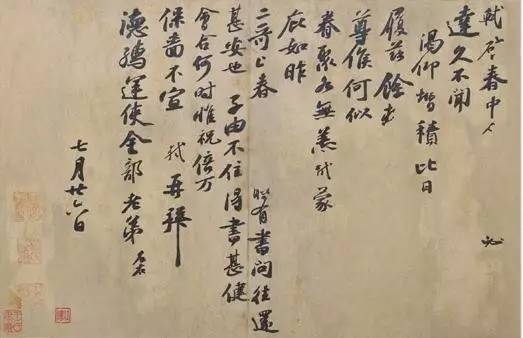 軾啓春中必
達久不聞
渴仰增積比日
履茲餘
尊候何似
眷聚各無恙軾蒙
庇如昨
二哥上春有書問往還
甚安也子由不住得書甚健
會合何時惟祝倍万
保嗇不宣軾再拜
德孺運使金部老弟左右
七月廿六日